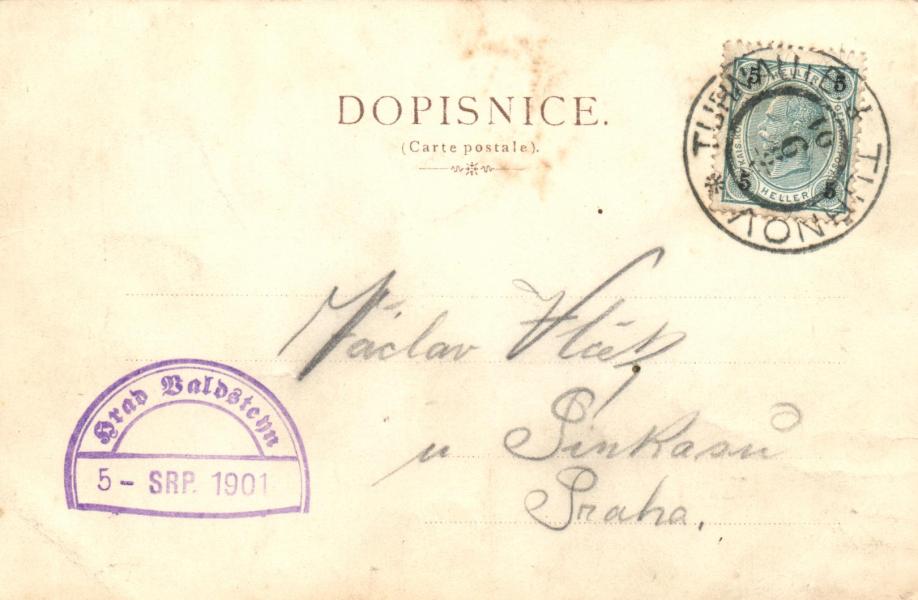 DOPISNICE.
(Carte postale).
5 HELLER 5
5 HELLER 5
TURNAU
TURNOV
6
Václav Vlček
u Pinkasů
Praha.
Hrad Valdsteyn
5 - SRP. 1901